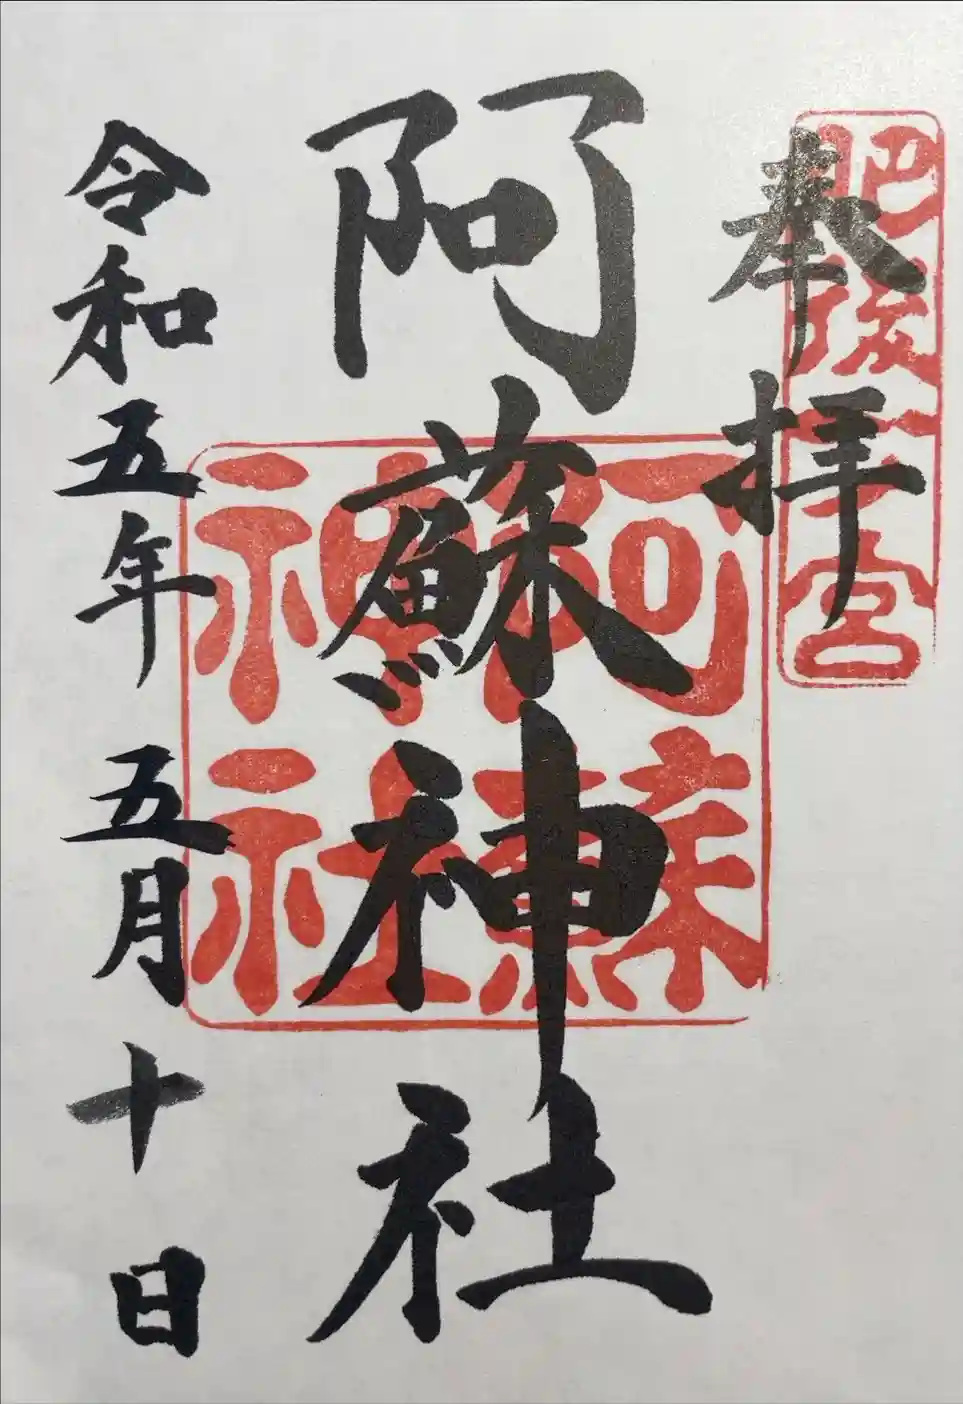 奉拝
肥後一之宮
阿蘇神社
阿蘇神社
令和五年 五月十日